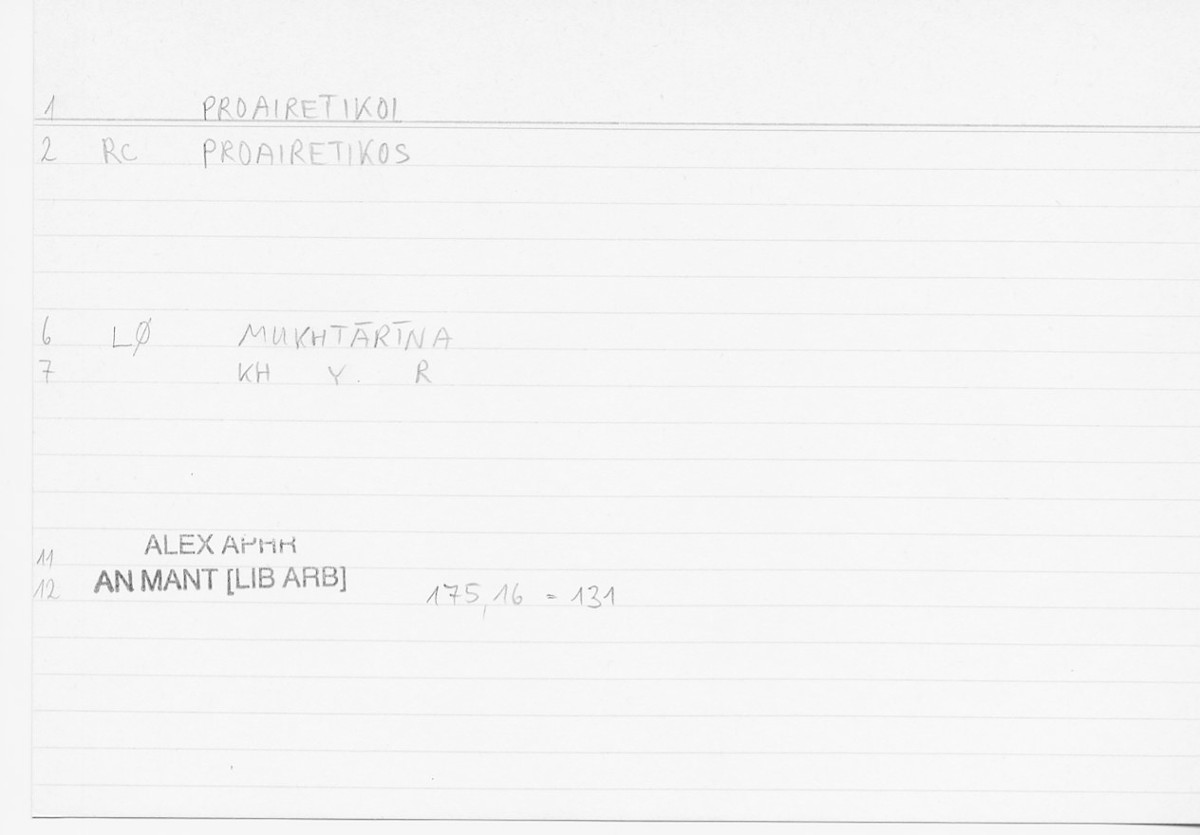 1 PROAIRETIKOI
2 RC PROAIRETIKOS
6 LØ MUKHTĀRĪNA
7 KH Y. R
11 ALEX APHR
12 AN MANT [LIB ARB] 175,16 = 131